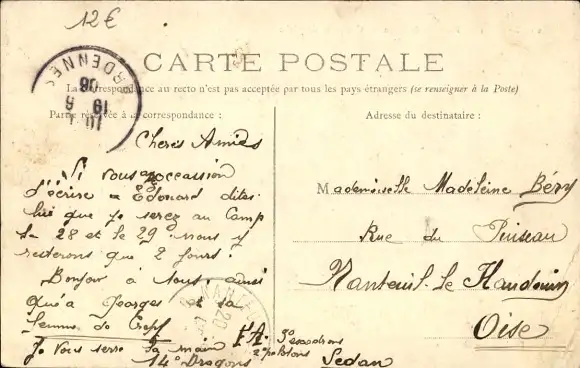 12€
ARDENNES
CARTE POSTALE
La correspondance au recto n'est pas acceptée par tous les pays étrangers (se renseigner à la Poste)
Partie réservée à la correspondance :
Cheres Amies
Si vous occassion
d'écrire a Edouard dites
lui que je serez au Camp
le 28 et le 29 nous y
resterons que 2 jours.
Bonjour à tous ainsi
qu'a Georges et sa
femme de Crepy
Je vous serre la main
14e Dragons
3e escadrons
2e pelotons
Sedan
Adresse du destinataire :
Mademoiselle Madeleine Béry
Rue du Puiseau
Nanteuil-le Haudouin
Oise